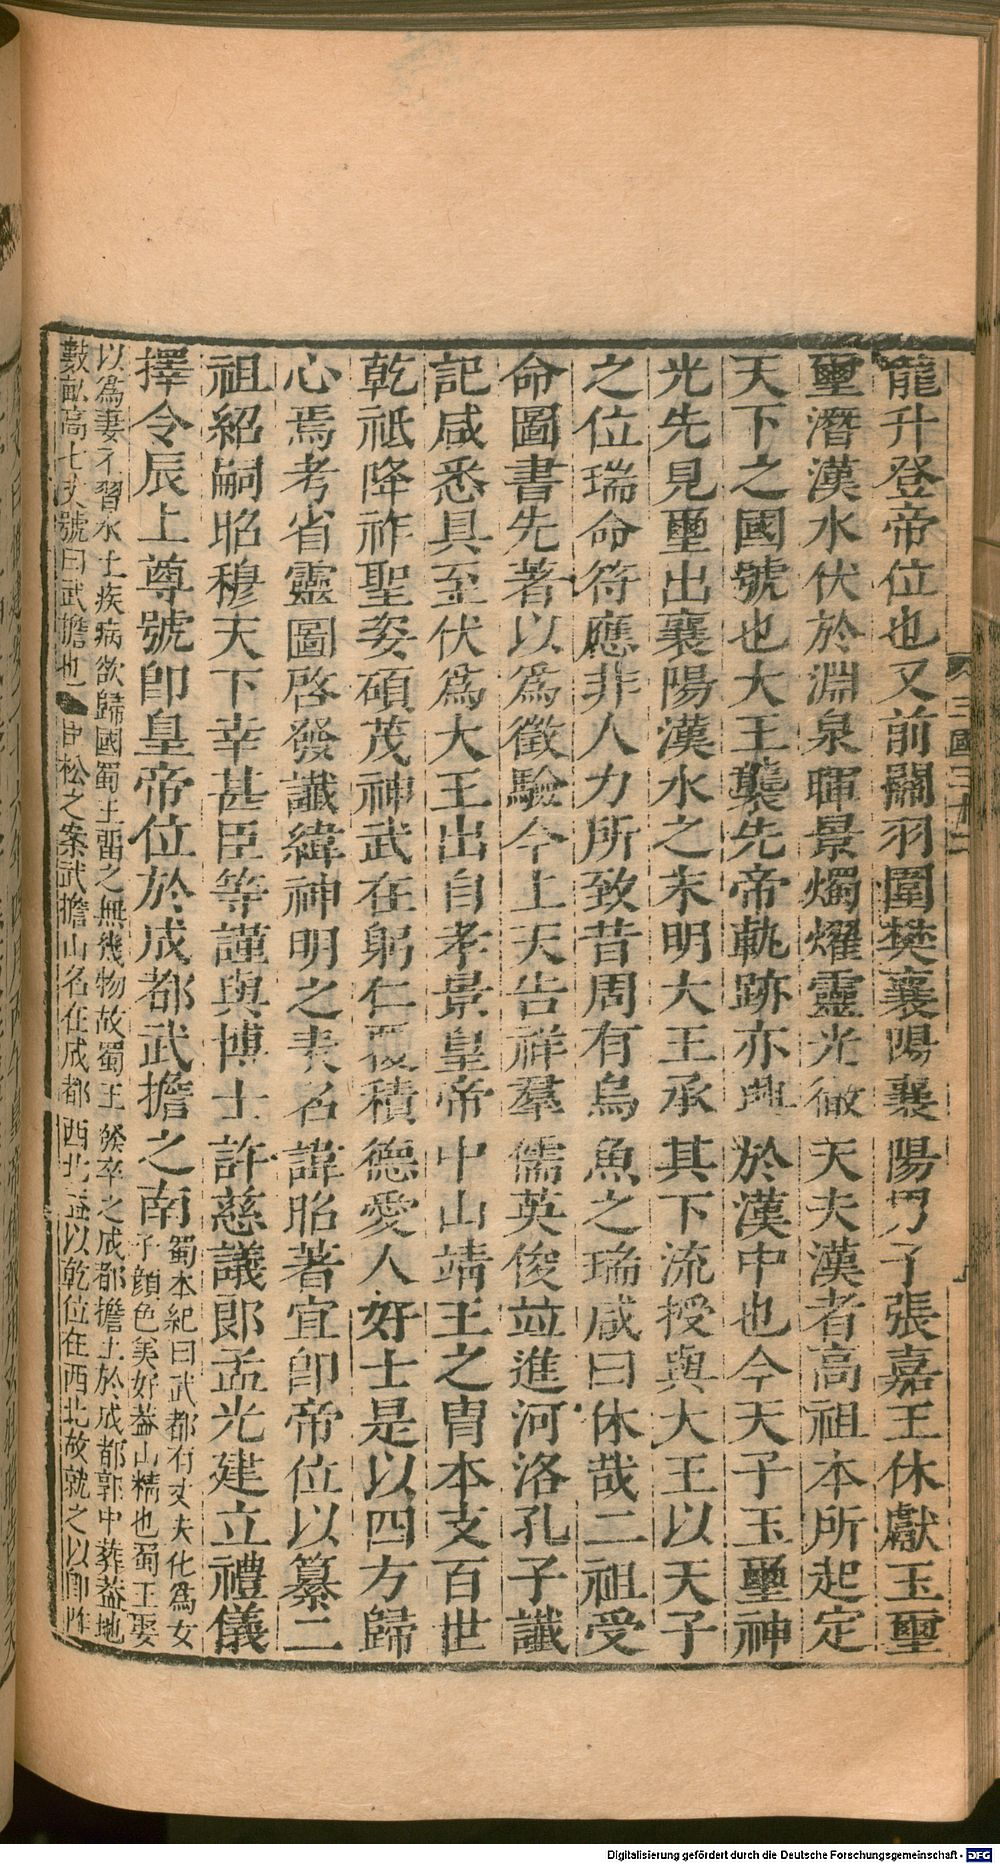 龍升登帝位也又前關羽圍樊襄陽襄陽男子張嘉王休獻玉璽
璽潛漢水伏於淵泉暉景燭燿靈光徹天夫漢者高祖本所起定
天下之國號也大王襲先帝軌跡亦興於漢中也今天子玉璽神
光先見璽出襄陽漢水之末明大王承其下流授與大王以天子
之位瑞命符應非人力所致昔周有烏魚之瑞咸曰休哉二祖受
命圖書先著以爲徵驗今上天告祥羣儒英俊竝進河洛孔子讖
記咸悉具至伏爲大王出自孝景皇帝中山靖王之胄本支百世
乾祇降祚聖姿碩茂神武在躬仁覆積德愛人好士是以四方歸
心焉考省靈圖啓發讖緯神明之表名諱昭著宜卽帝位以纂二
祖紹嗣昭穆天下幸甚臣等謹與博士許慈議郎孟光建立禮儀
擇令辰上尊號卽皇帝位於成都武擔之南
蜀本紀曰武都有丈夫化爲女
子顔色美好蓋山精也蜀王娶
以爲妻不習水土疾病欲歸國蜀王留之無幾物故蜀王發卒之成都擔土於成都郭中葬蓋地
數畝高七丈號曰武擔也 臣松之案武擔山名在成都西北蓋以乾位在西北故就之以卽阼
三國三十二
Digitalisierung gefördert durch die Deutsche Forschungsgemeinschaft - DFG